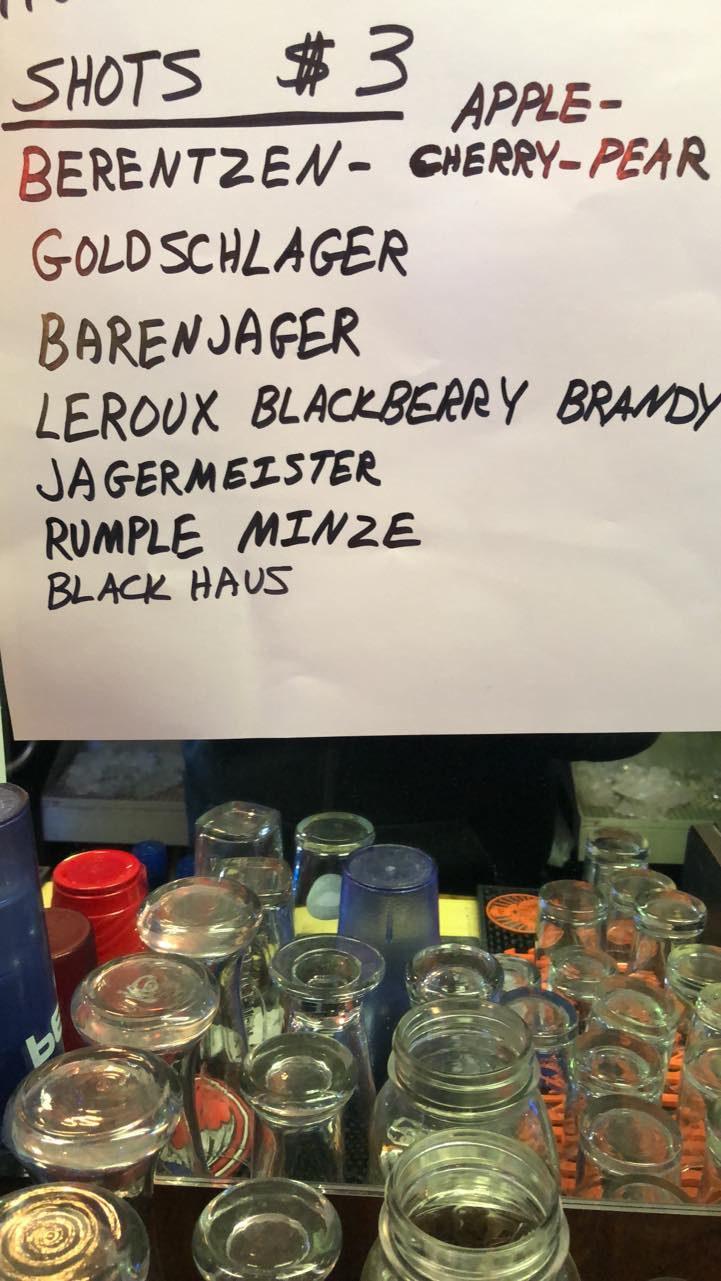 SHOTS $3
APPLE-
BERENTZEN- CHERRY-PEAR
GOLDSCHLAGER
BARENJAGER
LEROUX BLACKBERRY BRANDY
JAGERMEISTER
RUMPLE MINZE
BLACK HAUS